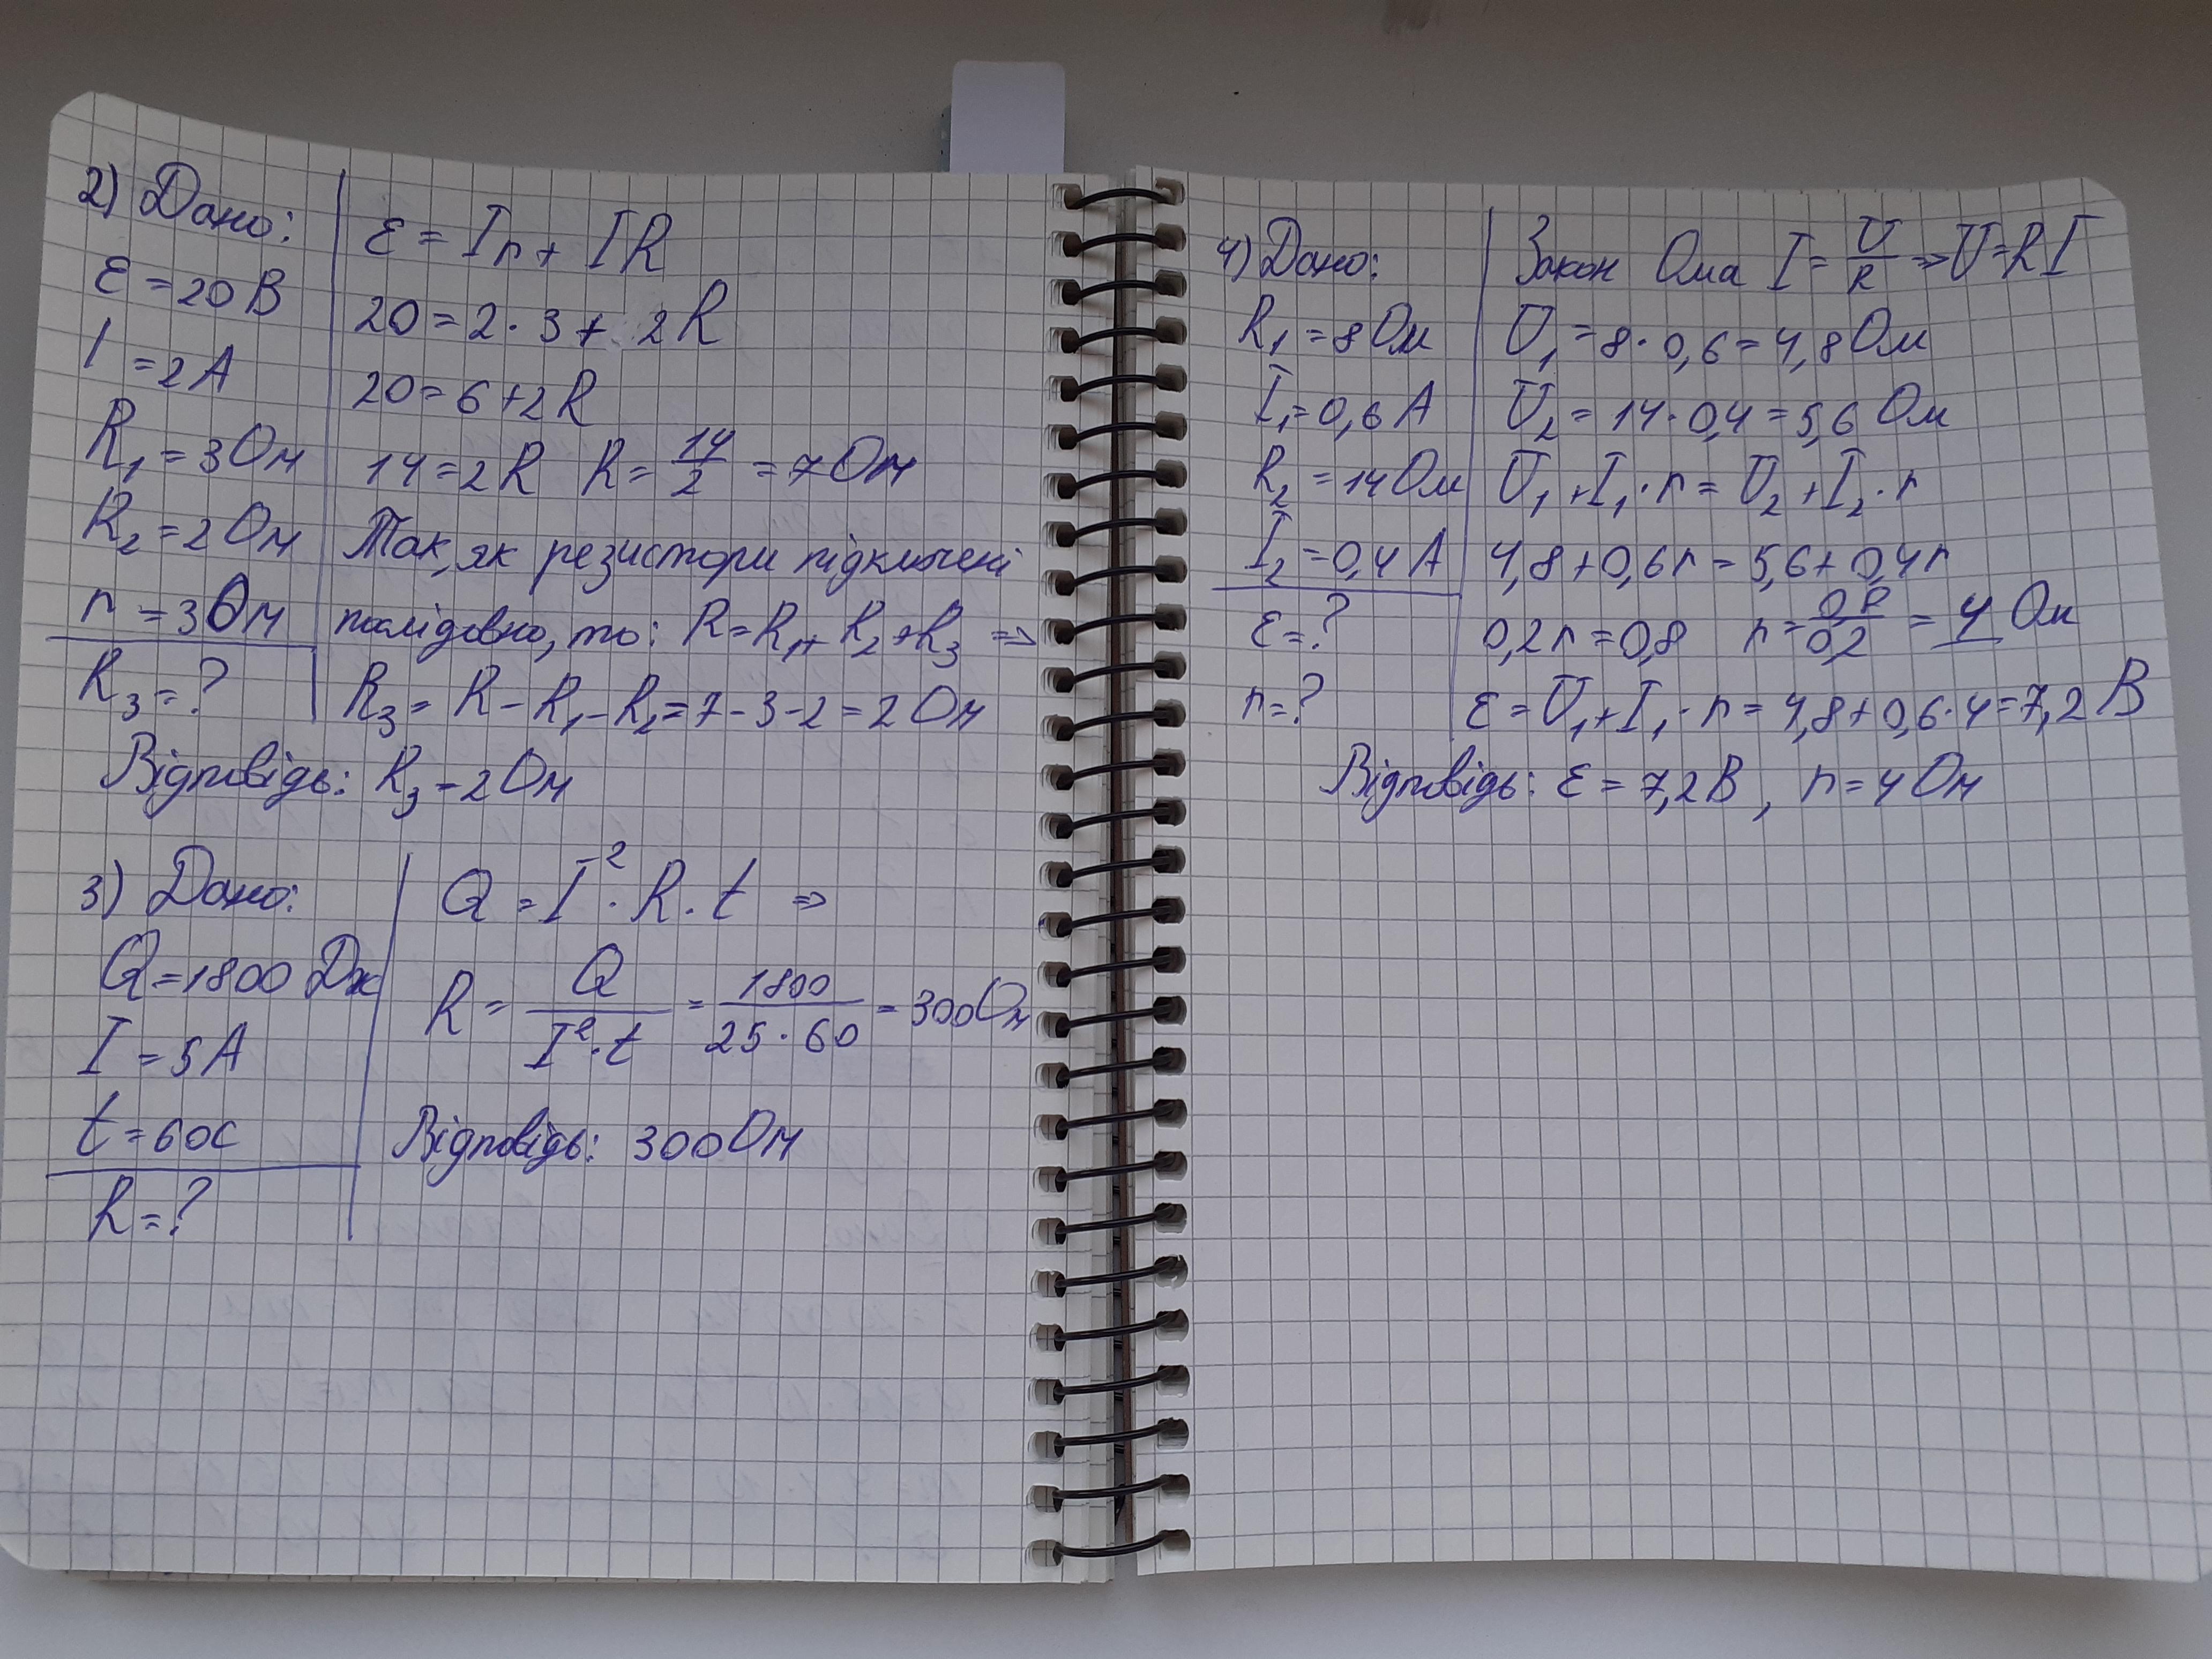 2) Дано:
ε = 20 В
I = 2 А
R₁ = 3 Ом
R₂ = 2 Ом
r = 3 Ом
R₃ = ?
ε = Ir + IR
20 = 2 · 3 + 2R
20 = 6 + 2R
14 = 2R R = 14/2 = 7 Ом
Так, як резистори підключені
послідовно, то: R = R₁ + R₂ + R₃ =>
R₃ = R – R₁ – R₂ = 7 – 3 – 2 = 2 Ом
Відповідь: R₃ – 2 Ом
3) Дано:
Q = 1800 Дж
I = 5 А
t = 60с
R = ?
Q = I² · R · t =>
R = Q/(I² · t) = 1800/(25 · 60) = 300 Ом
Відповідь: 300 Ом
4) Дано:
R₁ = 8 Ом
I₁ = 0,6 А
R₂ = 14 Ом
I₂ = 0,4 А
ε = ?
r = ?
Закон Ома I = U/R => U = RI
U₁ = 8 · 0,6 = 4,8 Ом
U₂ = 14 · 0,4 = 5,6 Ом
U₁ + I₁ · r = U₂ + I₂ · r
4,8 + 0,6r = 5,6 + 0,4r
0,2r = 0,8 r = 0,8/0,2 = 4 Ом
ε = U₁ + I₁ · r = 4,8 + 0,6 · 4 = 7,2 В
Відповідь: ε = 7,2 В, r = 4 Ом